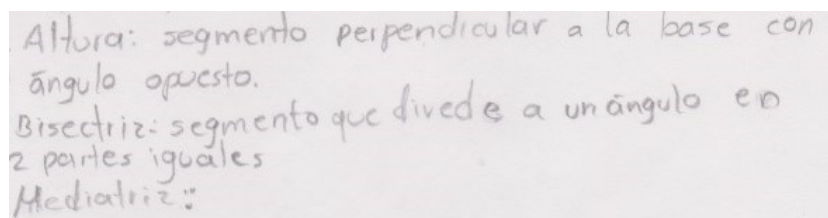 Altura: segmento perpendicular a la base con
ángulo opuesto.
Bisectriz: segmento que divede a un ángulo en
2 partes iguales
Mediatriz: